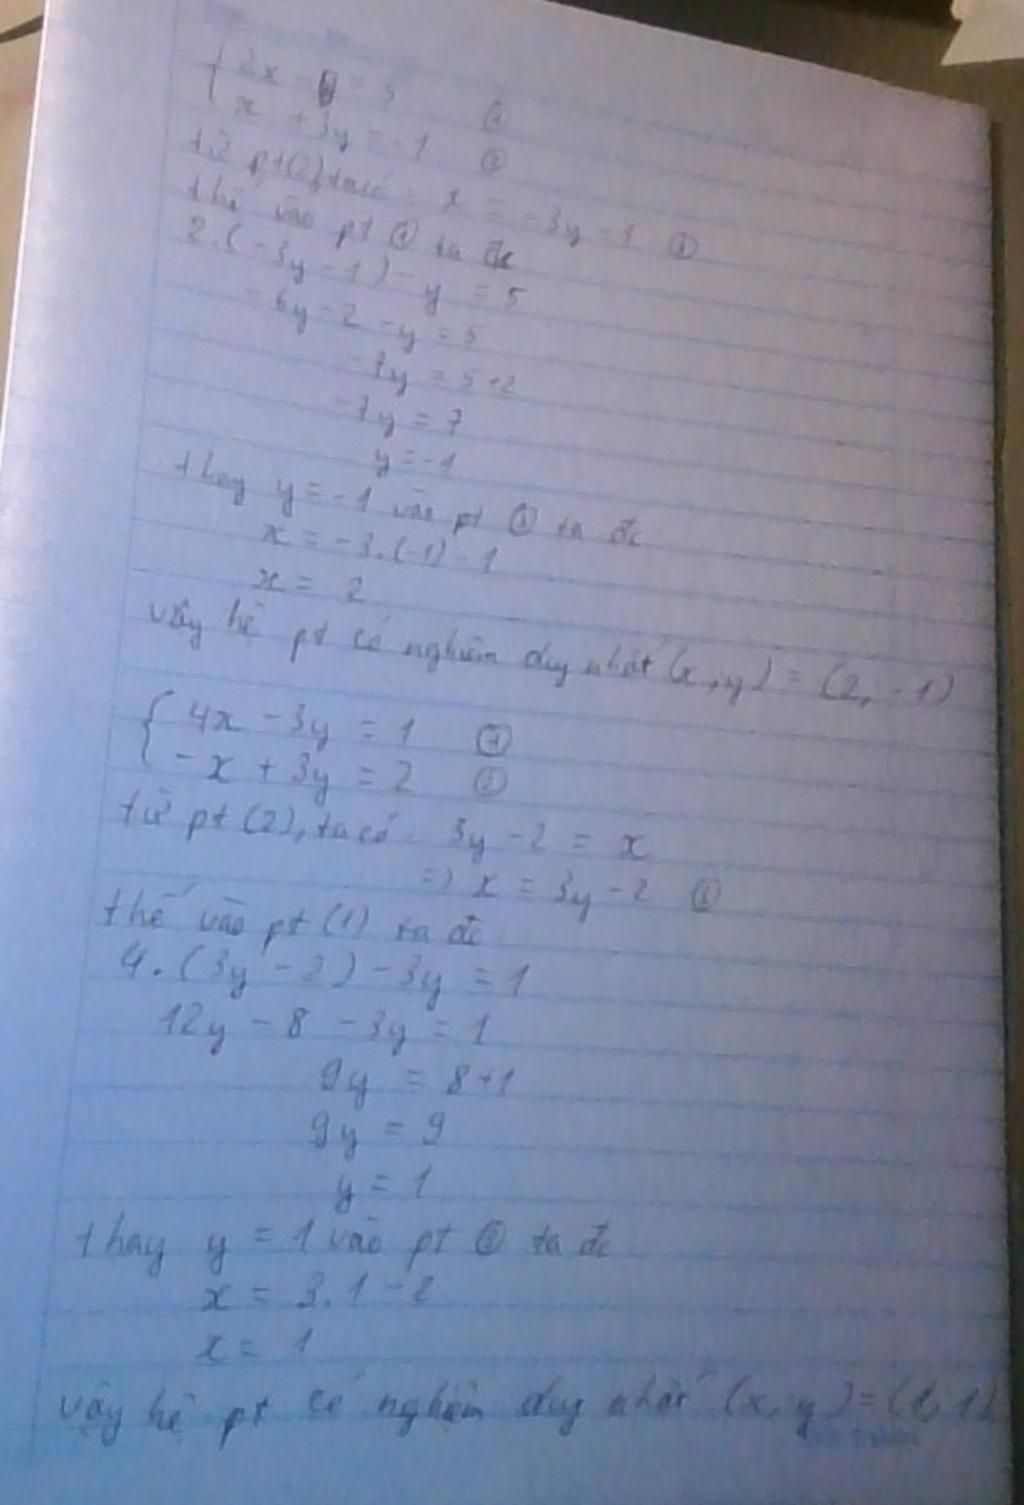 { 2x - y = 5 ①
x + 3y = -1 ②
từ pt(2), ta có: x = -3y - 1 ③
thế vào pt ① ta đc
2.(-3y - 1) - y = 5
-6y - 2 - y = 5
-7y = 5+2
-7y = 7
y = -1
thay y = -1 vào pt ③ ta đc
x = -3.(-1) - 1
x = 2
vậy hệ pt có nghiệm duy nhất (x, y) = (2, -1)
{ 4x - 3y = 1 ①
-x + 3y = 2 ②
từ pt (2), ta có: 3y - 2 = x
=> x = 3y - 2 ③
thế vào pt (1) ta đc
4.(3y - 2) - 3y = 1
12y - 8 - 3y = 1
9y = 8+1
9y = 9
y = 1
thay y = 1 vào pt ③ ta đc
x = 3.1 - 2
x = 1
vậy hệ pt có nghiệm duy nhất (x, y) = (1, 1)